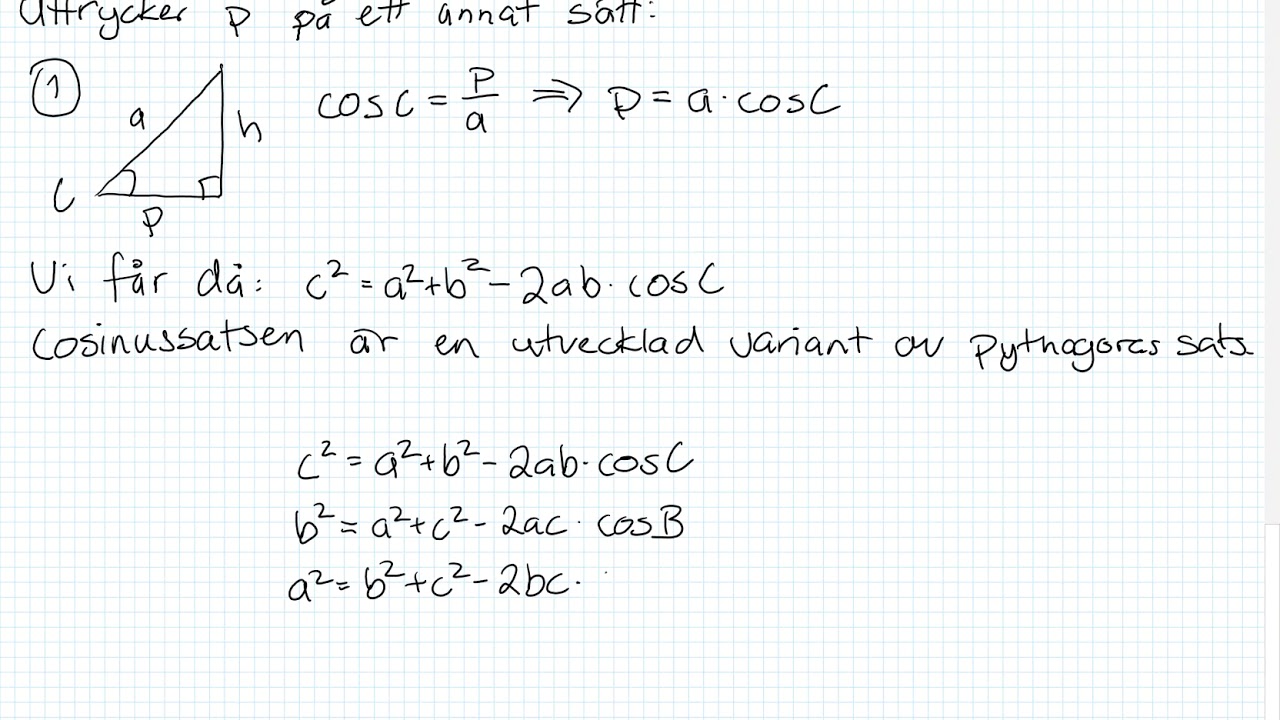 Uttrycker p på ett annat sätt:
① a h cos C = p/a ⇒ p = a · cos C
C
p
Vi får då: c² = a² + b² - 2ab · cos C
Cosinussatsen är en utvecklad variant av Pythagoras sats
c² = a² + b² - 2ab · cos C
b² = a² + c² - 2ac · cos B
a² = b² + c² - 2bc ·